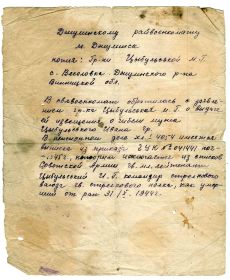 Джулинскому райвоенкомату
м. Джулинск
копия: Гр-ки Цыбульской М.Г.
с. Веселовка Джулинского р-на
Винницкой обл.
В облвоенкомат обратилась с заявле-
нием гр-ка Цыбульская М.Г. о выда-
че извещения о гибели мужа
Цыбульского Ивана Гр.
В пенсионном деле № 4054 имеется
выписка из приказа ГУК № 041441 по-
1945г, которым исключается из списков
Советской Армии гв. мл. лейтенант
Цыбульский И.Г. командир стрелкового
взвода гв. стрелкового полка, как умер-
ший от ран 31/X 1944г.